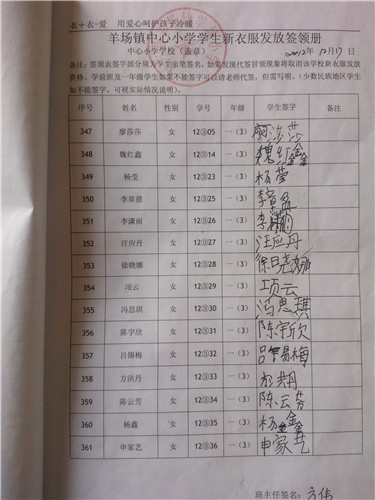 衣+衣=爱 用爱心呵护孩子冷暖
羊场镇中心小学学生新衣服发放签领册
中心小学学校(盖章) 2012年12月17日
备注:签领表签字部分须为学生亲笔签名,如果发现代签冒领现象将取消该学校新衣服发放
资格。学前班及一年级学生如果不能签字可以请老师代签,但需写明。(少数民族地区学生
如不能签字,可视实际情况说明)。
序号 姓名 性别 学号 年级 学生签字 备注
347 廖莎莎 女 12③05 一(3) 廖莎莎
348 魏红鑫 女 12③14 一(3) 魏红鑫
349 杨莹 女 12③23 一(3) 杨莹
350 李章盈 女 12③25 一(3) 李章盈
351 李潇雨 女 12③26 一(3) 李潇雨
352 汪应丹 女 12③27 一(3) 汪应丹
353 徐晓娜 女 12③28 一(3) 徐晓娜
354 项云 女 12③29 一(3) 项云
355 冯思琪 女 12③30 一(3) 冯思琪
356 陈宇欣 女 12③31 一(3) 陈宇欣
357 吕锡梅 女 12③32 一(3) 吕锡梅
358 方洪丹 女 12③33 一(3)
359 陈云芳 女 12③34 一(3) 陈云芳
360 杨鑫 女 12③35 一(3) 杨鑫
361 申家艺 女 12③36 一(3) 申家艺
班主任签名: